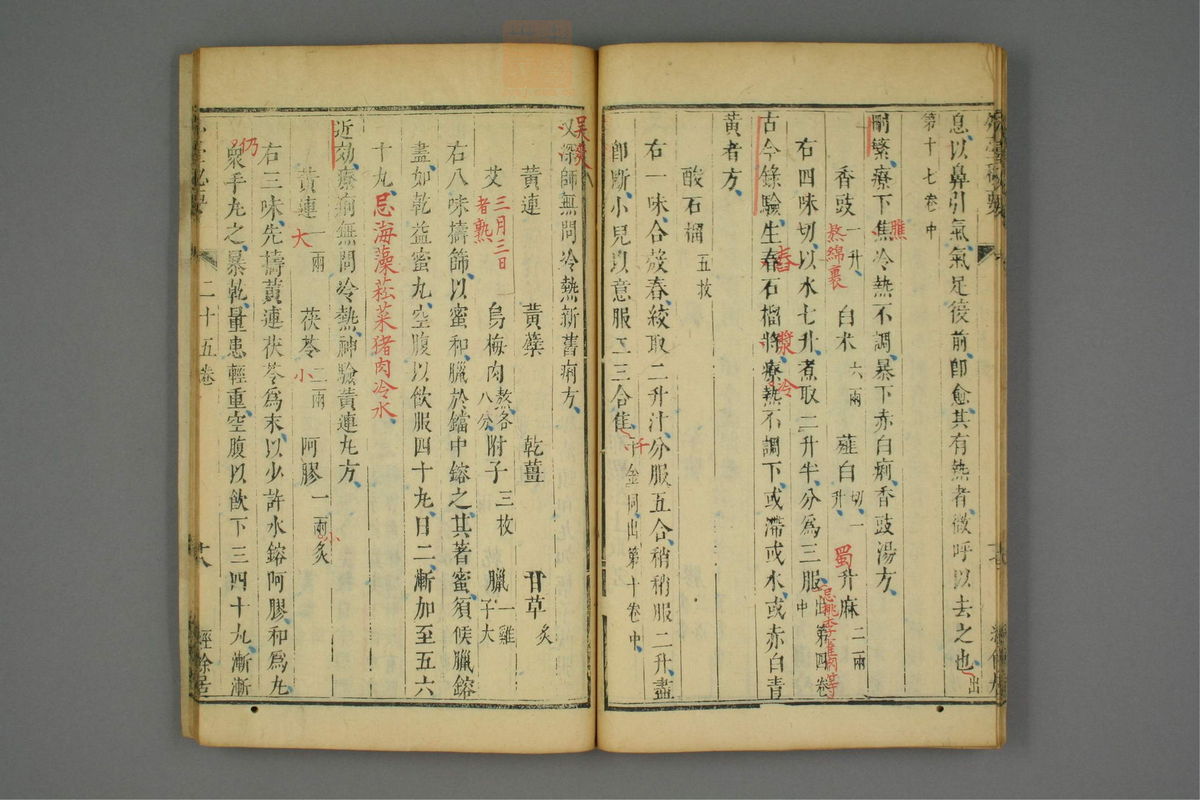 息以鼻引氣氣足後前卽愈其有熱者微呼以去之也出
第十七卷中
刪繁療下焦冷熱不調暴下赤白痢香豉湯方
膲
香豉一升 白朮六兩 薤白切一升 升麻二兩
熬綿裹
蜀
右四味切以水七升煮取二升半分爲三服出第四卷中
忌桃李雀肉等
古今錄驗生舂石榴漿療熱不調下或滯或水或赤白青
舂
漿
冷
黃者方
酸石榴五枚
右一味合殼舂絞取二升汁分服五合稍稍服二升盡
卽斷小兒以意服二三合隹千金同出第十卷中
千
又深師無問冷熱新舊痢方
黃連 黃蘗 乾薑 甘草炙
三月三日者熟
艾 烏梅肉熬各八分 附子三枚 臘一雞子大
右八味擣篩以蜜和臘於鐺中鎔之其著蜜須候臘鎔
盡如乾益蜜丸空腹以飲服四十丸日二漸加至五六
十丸忌海藻菘菜猪肉冷水
近効療痢無問冷熱神驗黃連丸方
黃連一兩 茯苓二兩 阿膠一兩炙
大
小
小
右三味先擣黃連茯苓爲末以少許水鎔阿膠和爲丸
仍
衆手丸之暴乾量患輕重空腹以飲下三四十丸漸漸
二十五卷
經餘居